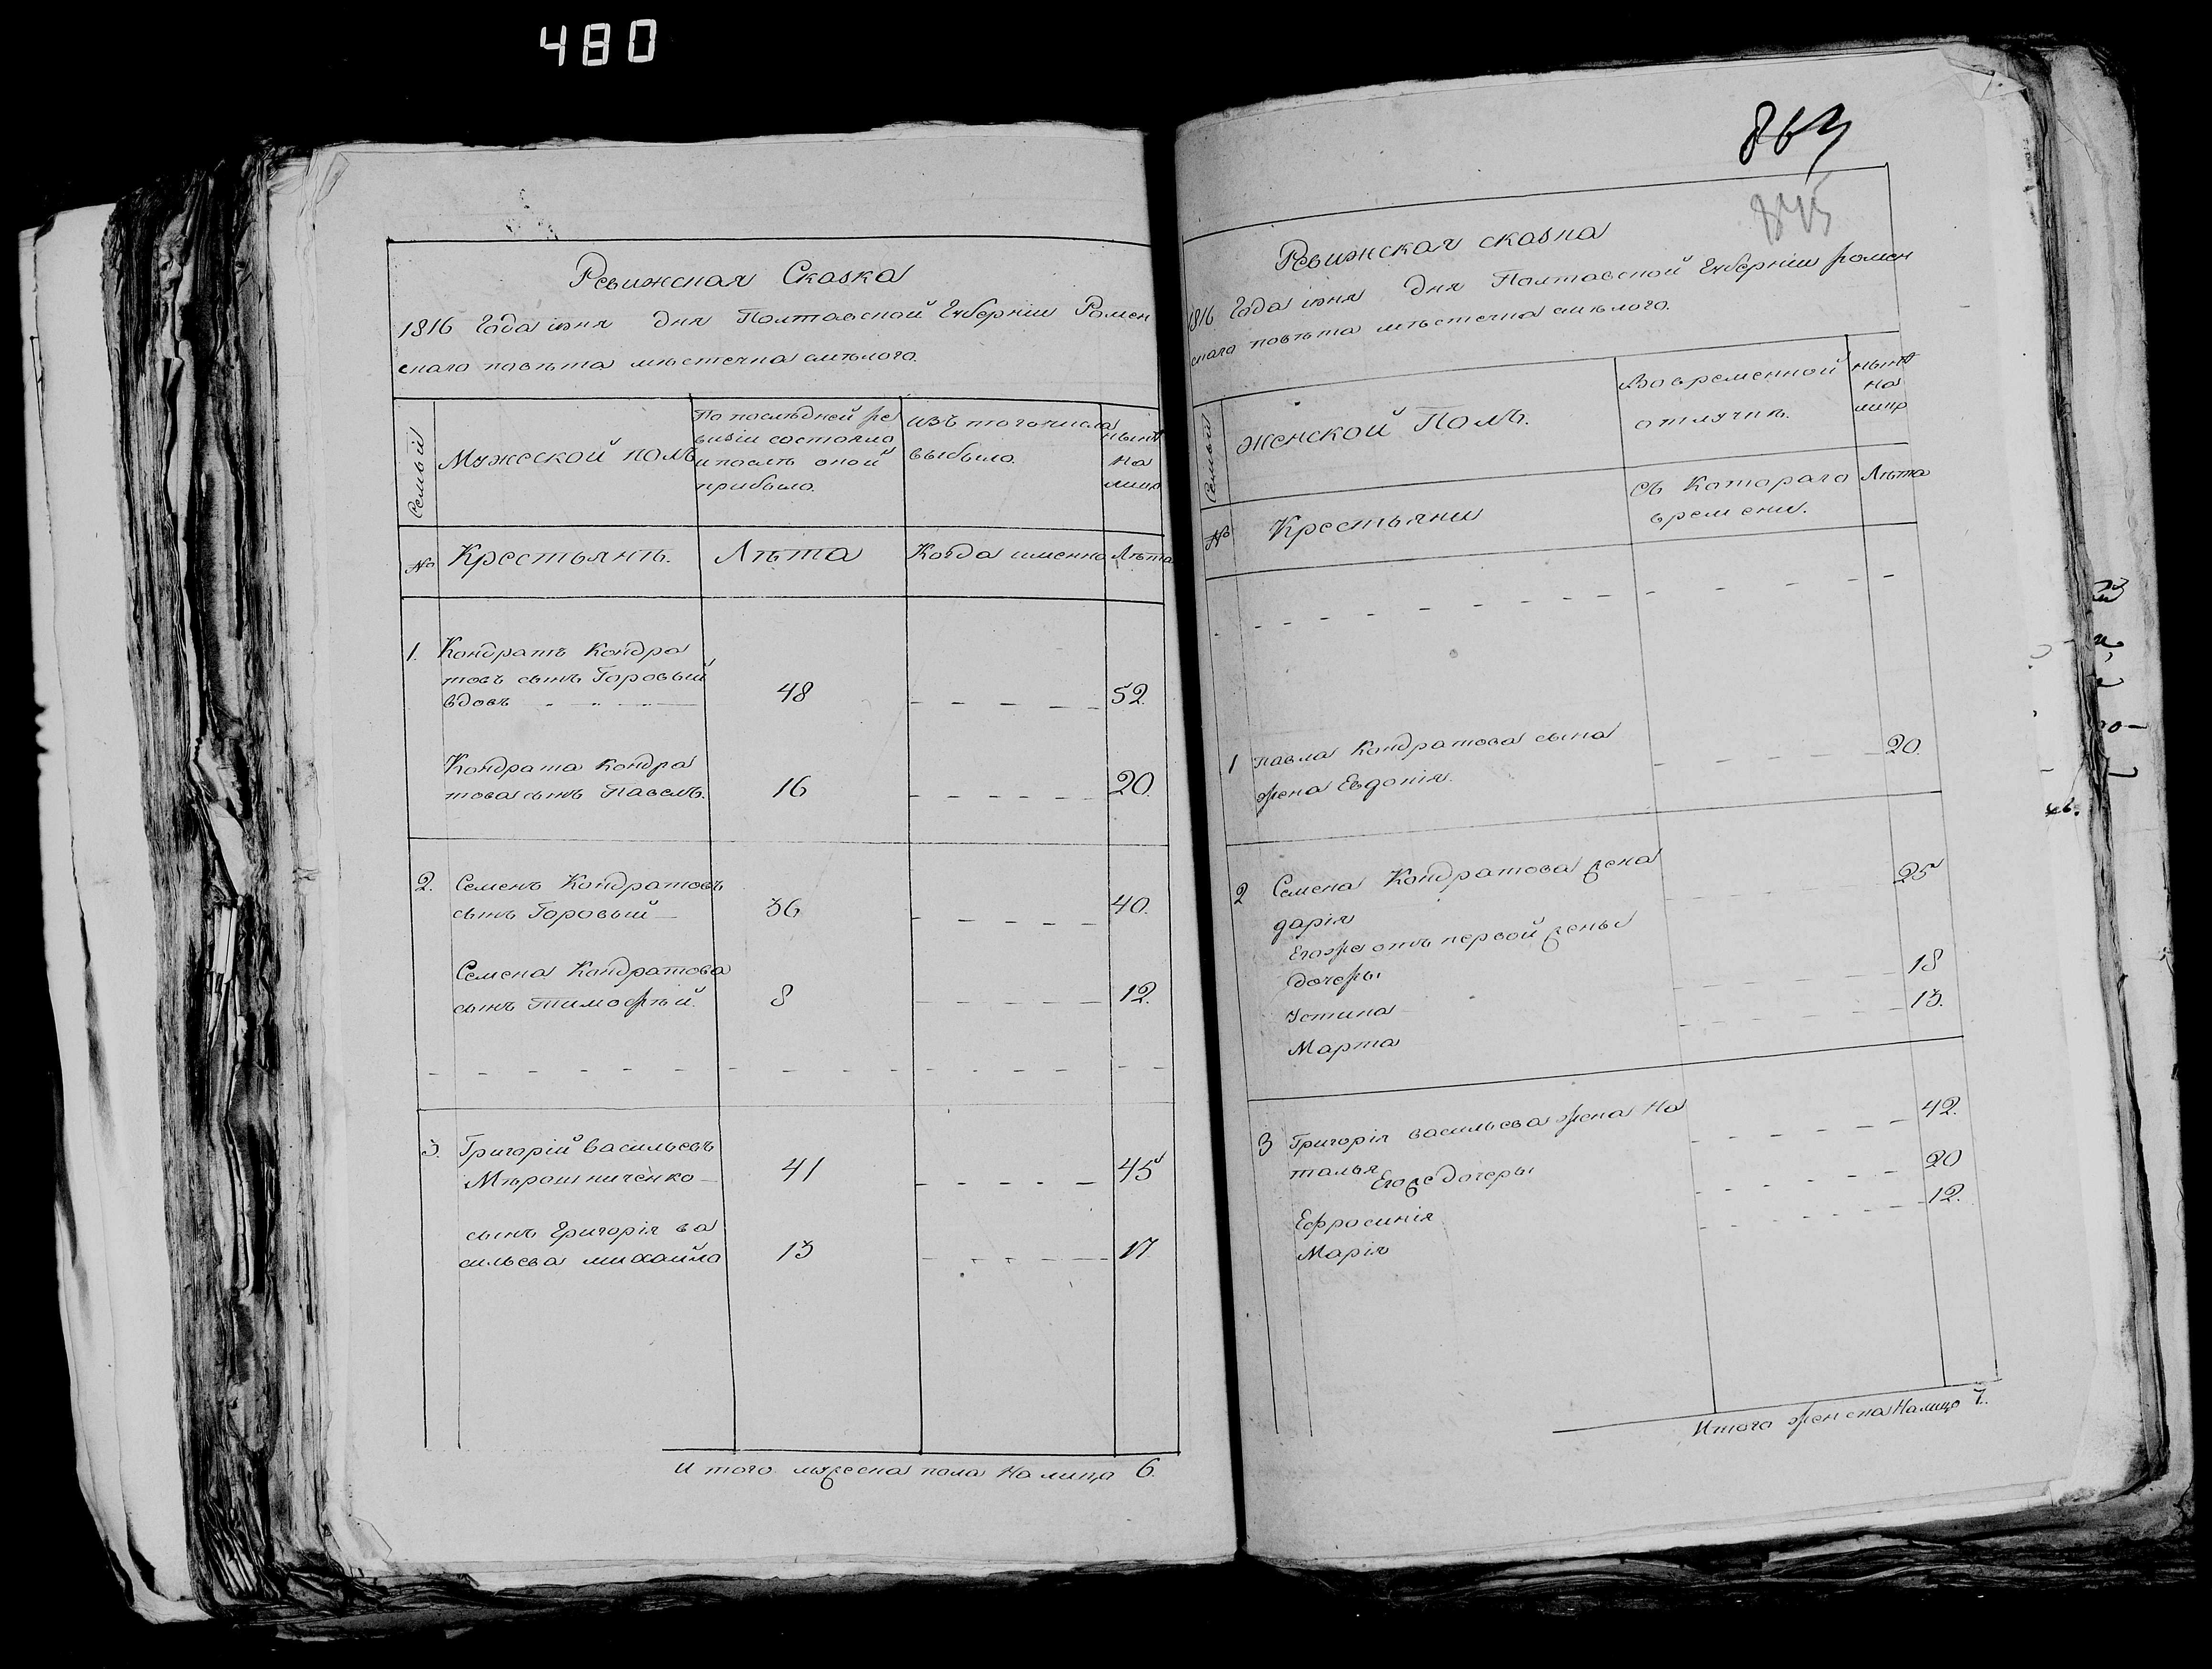 480
Ревижская Сказка
1816 Года июня дня Полтавской Губерніи Ромен
скаго повѣта мѣстечка смѣлого.
Семьи
Мужеской полъ
По послѣдней ре
визіи состояло
и послѣ оной
прибыло.
Изъ того числа
выбыло.
нынѣ
на
лицо
№ Крестьянъ. Лѣта Когда именно Лѣта
1. Кондратъ Кондра
товъ сынъ Горовый
вдовъ 48 52.
Кондрата Кондра
това сынъ Павелъ. 16 20.
2. Семенъ Кондратовъ
сынъ Горовый 36 40.
Семена Кондратова
сынъ Тимофѣй. 8 12.
3. Григорій Васильевъ
Мѣрошниченко 41 45
сынъ Григорія ва
сильева михайло 13 17
И того мужеска пола на лицо 6.
863
845
Ревижская сказка
1816 Года июня дня Полтавской Губерніи ромен
скаго повѣта мѣстечка смѣлого.
Семьи
женской Полъ.
Во временной
отлучкѣ.
нынѣ
на
лицо
№ Крестьяни
съ Котораго
времени.
Лѣта
1 павла Кондратова сына
жена Евдокія. 20.
2 Семена Кондратова жена
дарія 25
Егоже отъ первой жены
дочеры
Устина 18
Марта 13.
3 Григорія васильева жена На
талья 42.
Егоже дочеры
Ефросинія 20
Марія 12.
Итого женска На лицо 7.